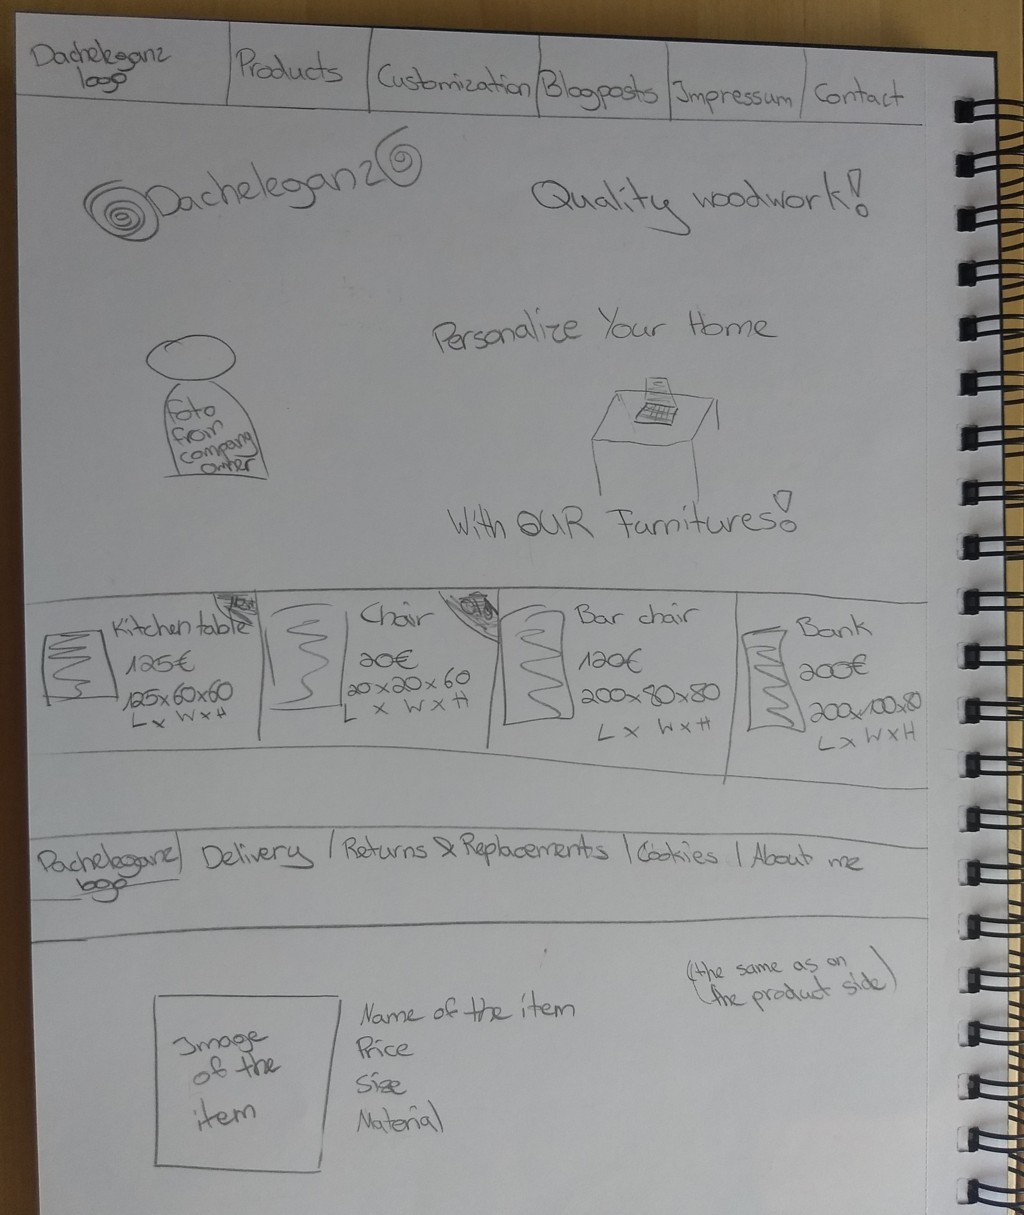 Dacheleganz
logo
Products
Customization
Blogposts
Impressum
Contact
Dacheleganz
Quality woodwork!
Personalize Your Home
Foto
from
company
owner
With OUR Furnitures!
Kitchen table
125€
125x60x60
L x W x H
Chair
20€
20x20x60
L x W x H
Bar chair
120€
200x80x80
L x W x H
Bank
200€
200x100x80
L x W x H
Dacheleganz
logo
Delivery
Returns & Replacements
Cookies
About me
(the same as on
the product side)
Image
of the
item
Name of the item
Price
Size
Material